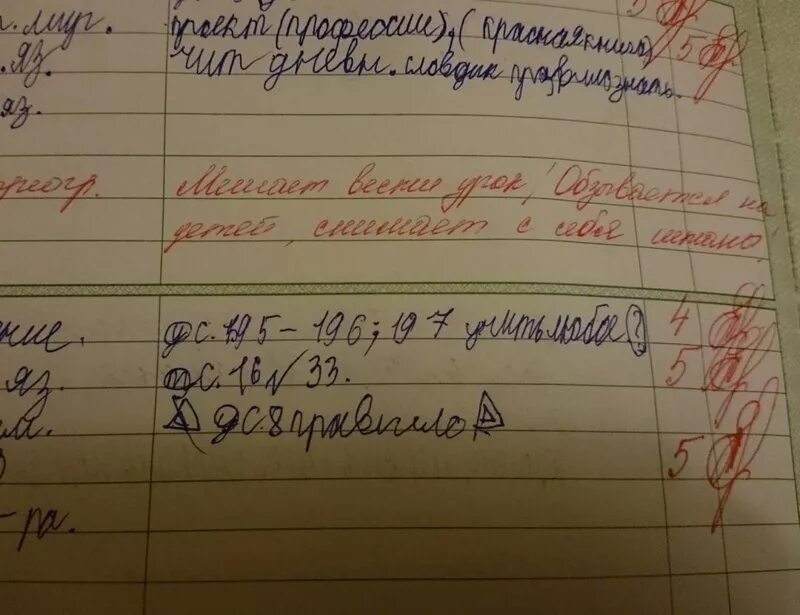 . мир. проект (профессии), (красная книга) 5
.яз. чит дневн. словдик правилознать. 5
яз.
Мешает вести урок! Обзывается на
детей, снимает с себя штаны
ние. ус. 195-196; 197 учить любое ? 4
яз. с. 16 № 33. 5
м. с. 8 правило
5
-ра.